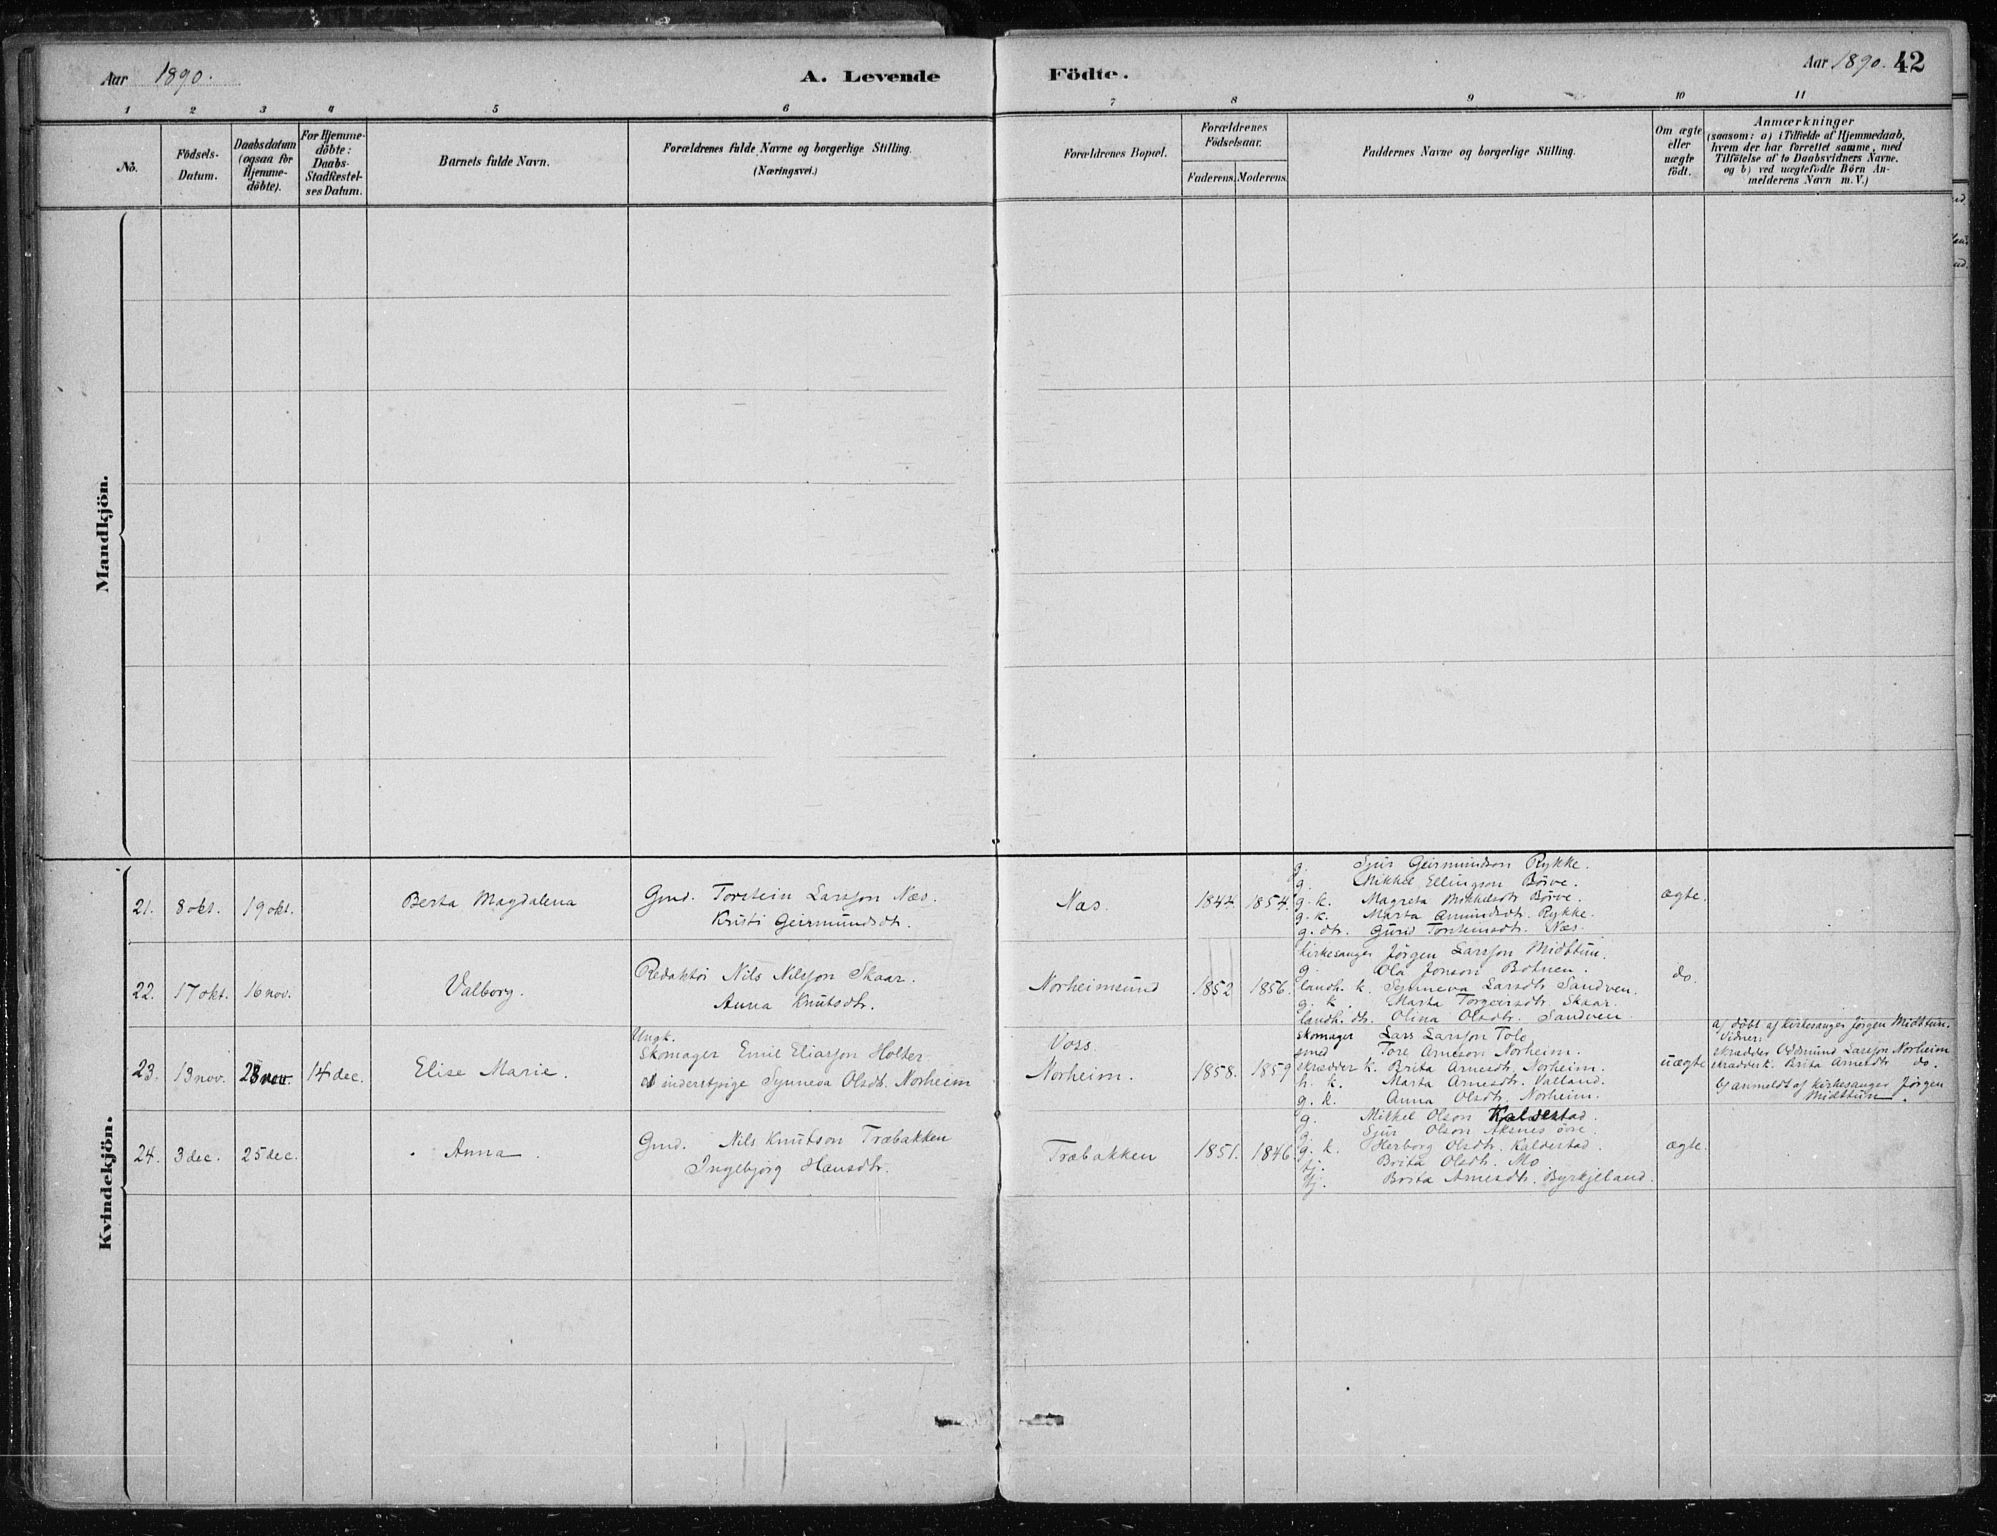 Aar 1890.
A. Levende Födte.
Aar 1890. 42
1 2 3 4 5 6 7 8 9 10 11
No.
Födsels-Datum.
Daabsdatum (ogsaa for Hjemme-döbte).
For Hjemme-döbte: Daabs-Stadfæstel-ses Datum.
Barnets fulde Navn.
Forældrenes fulde Navne og borgerlige Stilling. (Næringsvei.)
Forældrenes Bopæl.
Forældrenes Födselsaar.
Faderens. Moderens.
Faddernes Navne og borgerlige Stilling.
Om ægte eller uægte födt.
Anmærkninger
(saasom: a) i Tilfælde af Hjemmedaab, hvem der har forrettet samme, med Tilföielse af to Daabsvidners Navne. og b) ved uægtefödte Börn An-melderens Navn m. V.)
Mandkjön.
Kvindekjön.
21. 8 okt. 19 okt. Berta Magdalena
Gmd. Torstein Larsson Næs.
Kristi Geirmundsdtr.
Næs. 1844. 1854.
g. Sjur Geirmundson Rykke.
g. Mikkel Ellingson Börve.
g. k. Magreta Mikkelsdtr Börve.
g. k. Marta Amundsdtr. Rykke.
g. dtr. Gurid Torsteinsdtr. Næs.
ægte.
22. 17 okt. 16 nov. Valborg.
Redaktör Nils Nilsson Skaar.
Anna Knutsdtr.
Norheimsund 1852 1856.
kirkesanger Jörgen Larsson Midttun.
g. Ola Jonson Botnen.
landh. k. Synneva Larsdtr Sandven.
g. k. Marta Torgeirsdtr. Skaar.
landh. dtr. Olina Olsdtr. Sandven
do.
23. 13 nov. 28 nov. 14 dec. Elise Marie.
Ungk.
Skomager Emil Eliasson Holter
inderstpige Synneva Olsdtr. Norheim
Voss
Norheim. 1858. 1859
skomager Lars Larsson Tolo
smed Tore Arneson Norheim.
skrædder k. Brita Arnesdtr. Norheim.
h. k. Marta Arnesdtr. Valland.
g. k. Anna Olsdtr. Norheim.
uægte
a) döbt af kirkesanger Jörgen Midttun.
Vidner:
skrædder Oddmund Larsson Norheim
skrædderk. Brita Arnesdtr do.
b) anmeldt af kirkesanger Jörgen
Midttun.
24. 3 dec. 25 dec. Anna.
Gmd. Nils Knutson Træbakken
Ingebjörg Hansdtr.
Træbakken 1851. 1846.
g. Mikkel Olson Kaldestad.
g. Sjur Olson Aksnes övre.
g. k. Herborg Olsdtr. Kaldestad.
tj. Brita Olsdtr. Mo
tj. Brita Arnesdtr. Byrkjeland.
ægte.